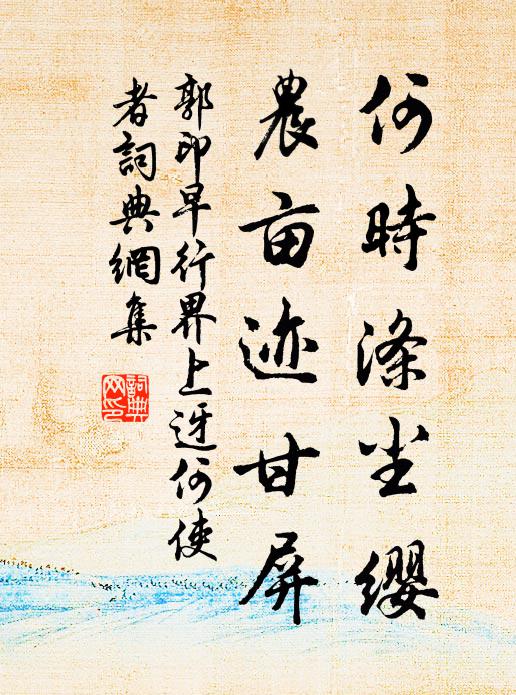 何時滌尘纓
農亩迹甘屏
郭印早行界上迓何使
者詞典網集
詞典
网印